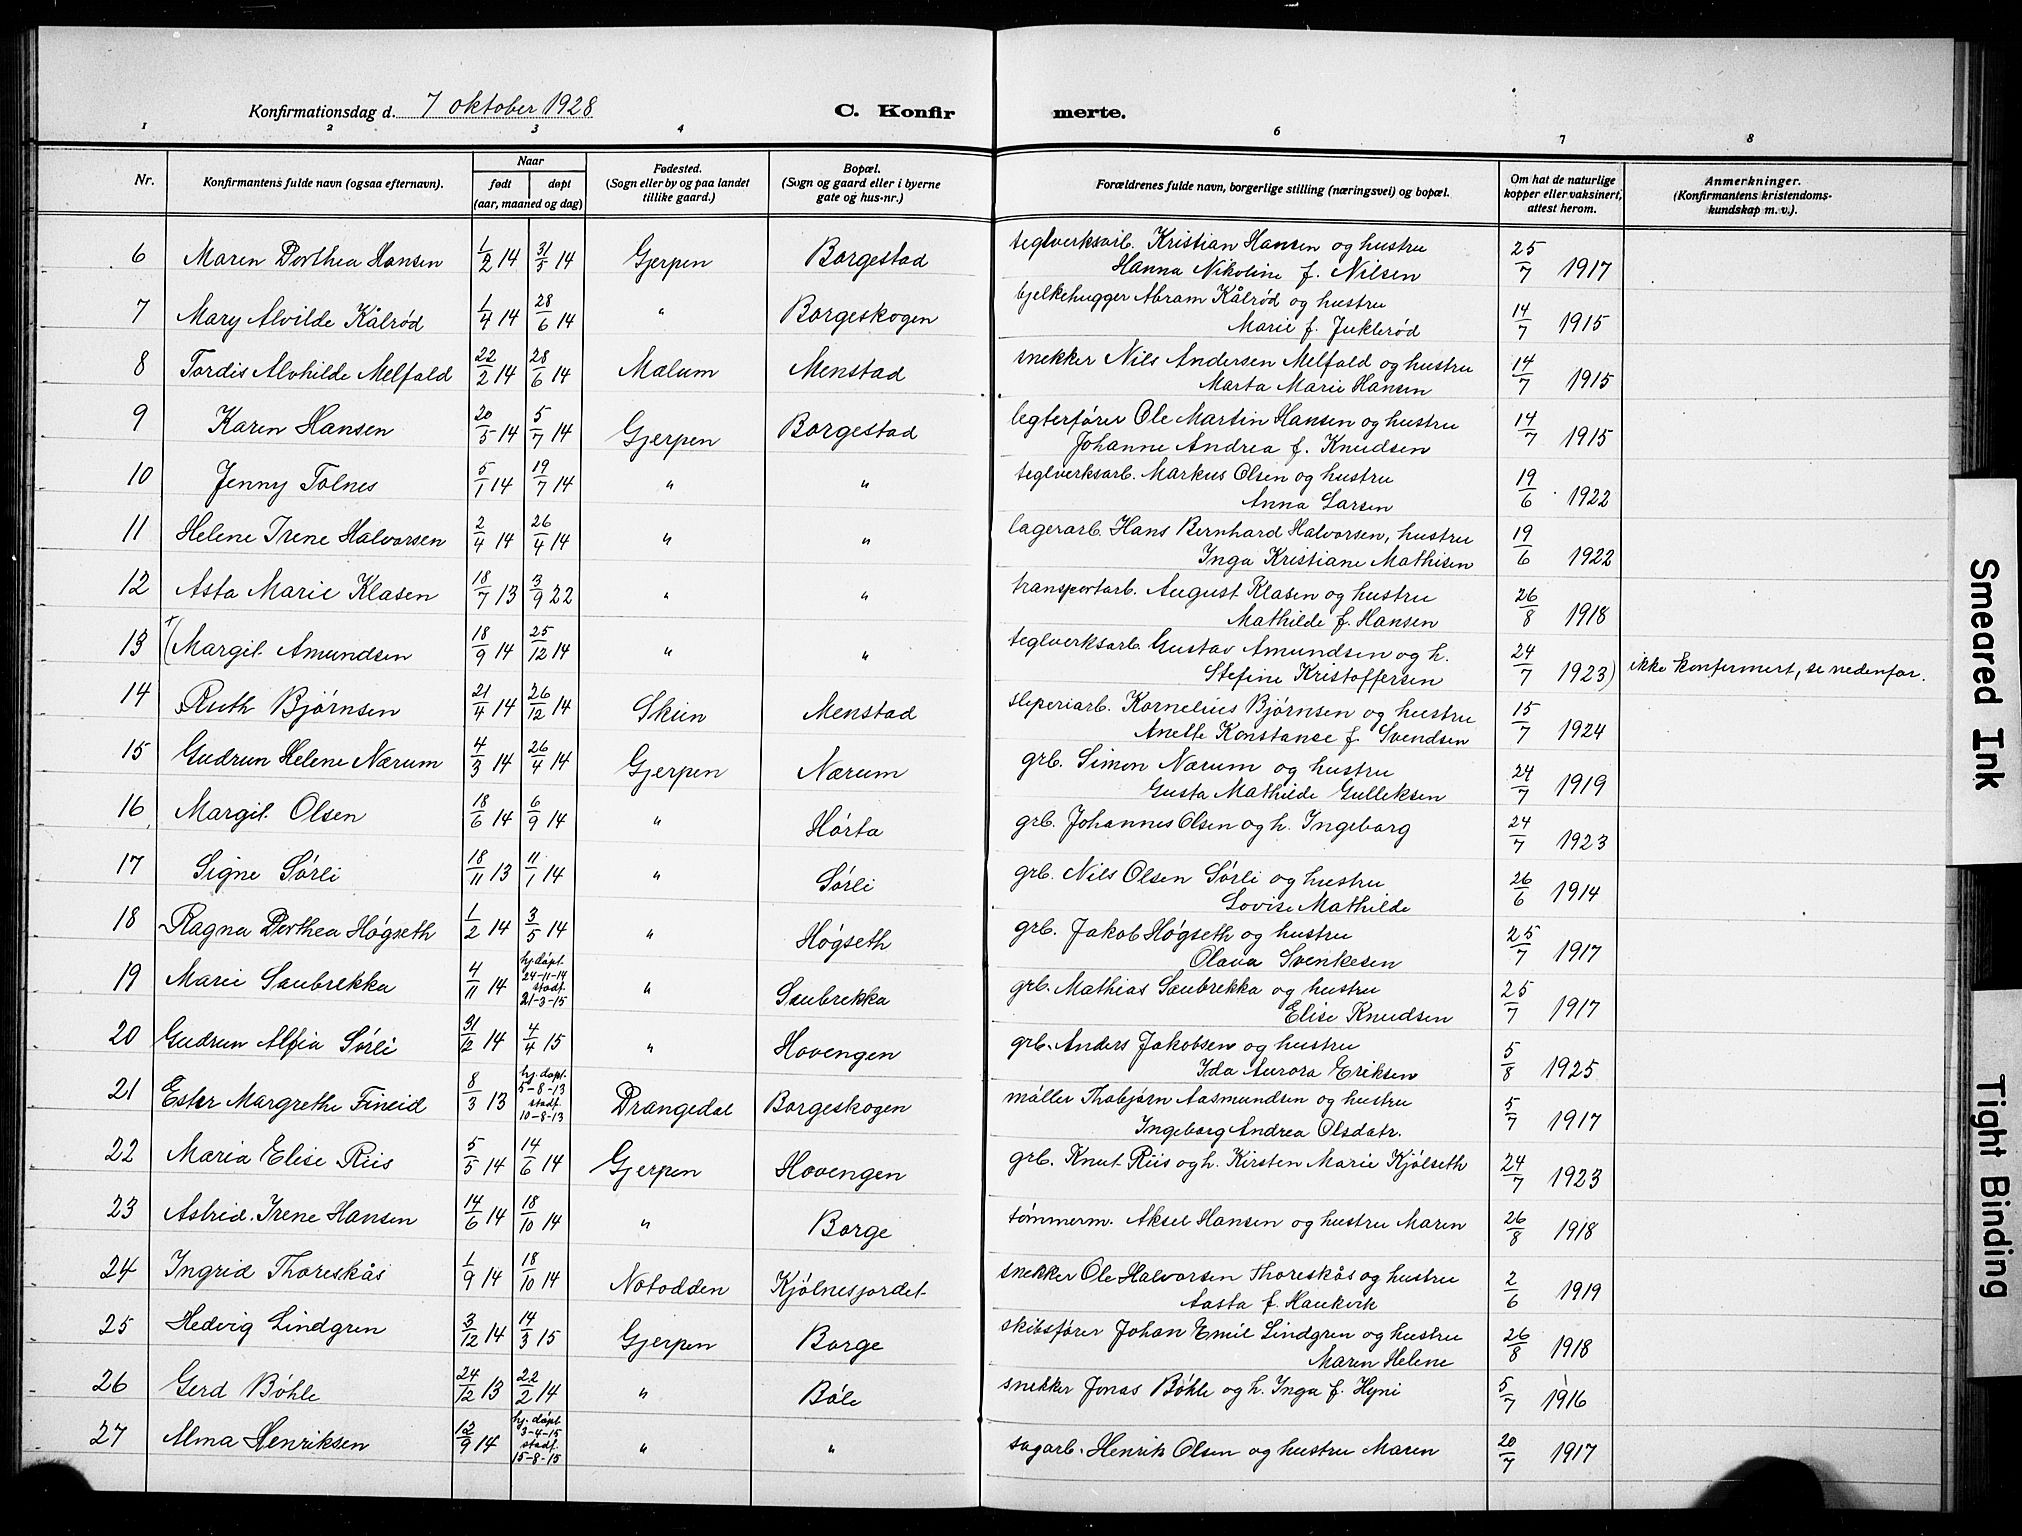 Konfirmationsdag d. 7 oktober 1928
C. Konfirmerte.
1 2 3 4 6 7 8
Nr.
Konfirmantens fulde navn (ogsaa efternavn).
Naar
født døpt
(aar, maaned og dag)
Fødested.
(Sogn eller by og paa landet
tillike gaard.)
Bopæl.
(Sogn og gaard eller i byerne
gate og hus-nr.)
Forældrenes fulde navn, borgerlige stilling (næringsvei) og bopæl.
Om hat de naturlige
kopper eller vaksinert,
attest herom.
Anmerkninger.
(Konfirmantens kristendoms-
kundskap m. v.).
6 Maren Dorthea Hansen 1/2 14 31/5 14 Gjerpen Borgestad teglverksarb. Kristian Hansen og hustru 25/7 1917
Hanna Nikoline f. Nilsen
7 Mary Alvilde Kålrød 1/4 14 28/6 14 " Borgeskogen bjelkehugger Abram Kålrød og hustru 14/7 1915
Marie f. Juklerød
8 Tordis Alvhilde Melfald 22/2 14 28/6 14 Mælum Menstad snekker Nils Andersen Melfald og hustru 14/7 1915
Marta Marie Hansen
9 Karen Hansen 20/5 14 5/7 14 Gjerpen Borgestad legterfører Ole Martin Hansen og hustru 14/7 1915
Johanne Andrea f. Knudsen
10 Jenny Tolnes 5/1 14 19/7 14 " " teglverksarb. Markus Olsen og hustru 19/6 1922
Anna Larsen
11 Helene Irene Halvorsen 2/4 14 26/4 14 " " lagerarb. Hans Bernhard Halvorsen, hustru 19/6 1922
Inga Kristiane Mathisen
12 Asta Marie Klasen 18/7 13 3/9 22 " " transportarb. August Klasen og hustru 26/8 1918
Mathilde f. Hansen
13 (Margit Amundsen 18/9 14 25/12 14 " " teglverksarb. Gustav Amundsen og h. 24/7 1923) ikke konfermert, se nedenfor.
Stefine Kristoffersen
14 Ruth Bjørnsen 21/4 14 26/12 14 Skien Menstad sleperiarb. Kornelius Bjørnsen og hustru 15/7 1924
Anette Konstanse f. Svendsen
15 Gudrun Helene Nærum 4/3 14 26/4 14 Gjerpen Nærum grb. Simon Nærum og hustru 24/7 1919
Gusta Mathilde Gulleksen
16 Margit Olsen 18/6 14 6/9 14 " Hørta grb. Johannes Olsen og h. Ingeborg 24/7 1923
17 Signe Sørli 18/11 13 11/1 14 " Sørli grb. Nils Olsen Sørli og hustru 26/6 1914
Lovise Mathilde
18 Ragna Dorthea Høgseth 1/2 14 3/5 14 " Høgseth grb. Jakob Høgseth og hustru 25/7 1917
Olava Svenkesen
19 Marie Saubrekka 4/11 14 hj. døpt 24-11-14 stadf. 21-3-15 " Saubrekka grb. Mathias Saubrekka og hustru 25/7 1917
Elise Knudsen
20 Gudrun Alfia Sørli 31/12 14 4/4 15 " Hovengen grb. Anders Jakobsen og hustru 5/8 1925
Ida Aurora Eriksen
21 Ester Margrethe Fineid 8/3 13 hj. døpt 5-8-13 stadf. 10-8-13 Drangedal Borgeskogen møller Thobjørn Aasmundsen og hustru 5/7 1917
Ingeborg Andrea Olsdatr.
22 Maria Elise Riis 5/5 14 14/6 14 Gjerpen Hovengen grb. Knut Riis og h. Kirsten Marie Kjølseth 24/7 1923
23 Astrid Irene Hansen 14/6 14 18/10 14 " Borge tømmerm. Aksel Hansen og hustru Maren 26/8 1918
24 Ingrid Thoreskås 1/9 14 18/10 14 Notodden Kjølnesjordet snekker Ole Halvorsen Thoreskås og hustru 2/6 1919
Aasta f. Haukvik
25 Hedvig Lindgren 3/12 14 14/3 15 Gjerpen Borge skibsfører Johan Emil Lindgren og hustru 26/8 1918
Maren Helene
26 Gerd Bøhle 24/12 13 22/2 14 " Bøle snekker Jonas Bøhle og h. Inga f. Hyni 5/7 1916
27 Alma Henriksen 12/9 14 hj. døpt 3-4-15 stadf. 15-8-15 " " sagarb. Henrik Olsen og hustru Maren 20/7 1917
Smeared Ink
Tight Binding